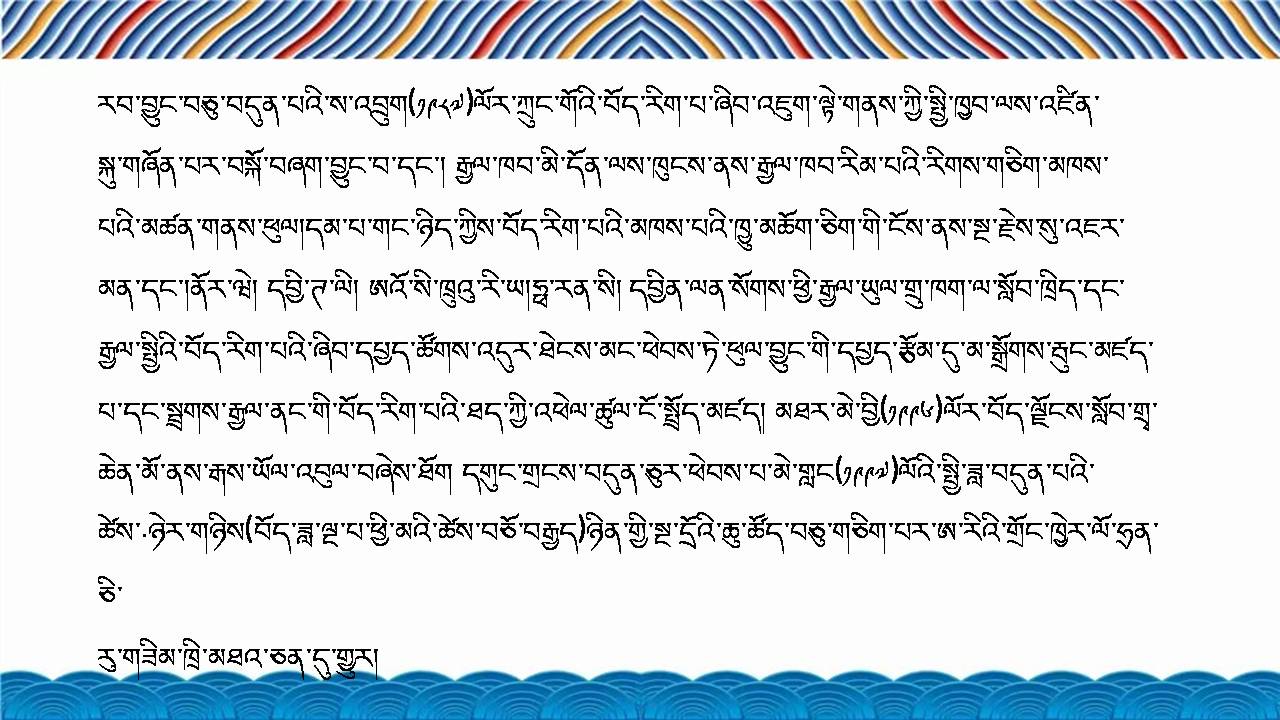 རབ་བྱུང་བཅུ་བདུན་པའི་ས་འབྲུག(༡༩༨༧)ལོར་ཀྲུང་གོའི་བོད་རིག་པ་ཞིབ་འཇུག་ལྟེ་གནས་ཀྱི་སྤྱི་ཁྱབ་ལས་འཛིན་
སྐུ་གཞོན་པར་བསྐོ་བཞག་བྱུང་བ་དང་། རྒྱལ་ཁབ་མི་དོན་ལས་ཁུངས་ནས་རྒྱལ་ཁབ་རིམ་པའི་རིགས་གཅིག་མཁས་
པའི་མཚན་གནས་ཕུལ།དམ་པ་གང་ཉིད་ཀྱིས་བོད་རིག་པའི་མཁས་པའི་ཁྱུ་མཆོག་ཅིག་གི་ངོས་ནས་སྔ་རྗེས་སུ་འཇར་
མན་དང་།ནོར་ཝེ། དབྱི་ཏ་ལི། ཨའོ་སི་ཁྲུའུ་རི་ཡ།ཧྥ་རན་སི། དབྱིན་ལན་སོགས་ཕྱི་རྒྱལ་ཡུལ་གྲུ་ཁག་ལ་སློབ་ཁྲིད་དང་
རྒྱལ་སྤྱིའི་བོད་རིག་པའི་ཞིབ་དཔྱད་ཚོགས་འདུར་ཐེངས་མང་ཕེབས་ཏེ་ཕུལ་བྱུང་གི་དཔྱད་རྩོམ་དུ་མ་སྒྲོགས་རྒུང་མཛད་
པ་དང་སྦྲགས་རྒྱལ་ནང་གི་བོད་རིག་པའི་ཐད་ཀྱི་འཕེལ་ཚུལ་ངོ་སྤྲོད་མཛད། མཐར་མེ་བྱི(༡༩༩༦)ལོར་བོད་ལྗོངས་སློབ་གྲྭ་
ཆེན་མོ་ནས་རྒས་ཡོལ་འབུལ་བཞེས་ཐོག དགུང་གྲངས་བདུན་ཅུར་ཕེབས་པ་མེ་གླང(༡༩༩༧)ལོའི་སྤྱི་ཟླ་བདུན་པའི་
ཚེས་.ཉེར་གཉིས(བོད་ཟླ་ལྔ་པ་ཕྱི་མའི་ཚེས་བཅོ་བརྒྱད)ཉིན་གྱི་སྔ་དྲོའི་ཆུ་ཚོད་བཅུ་གཅིག་པར་ཨ་རིའི་གྲོང་ཁྱེར་ལོ་ཧྲན་
ཅི་
རུ་གཟིམ་ཁྲི་མཐའ་ཅན་དུ་གྱུར།